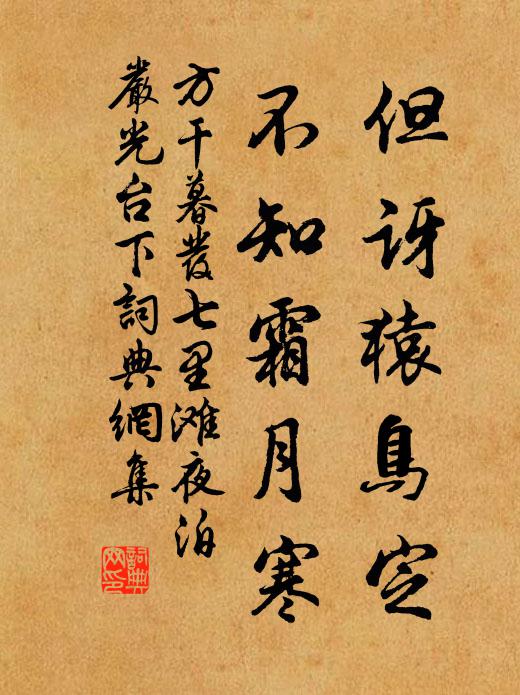 但訝猿鳥定
不知霜月寒
方干暮發七里滩夜泊
嚴光台下詞典網集
詞典
网印